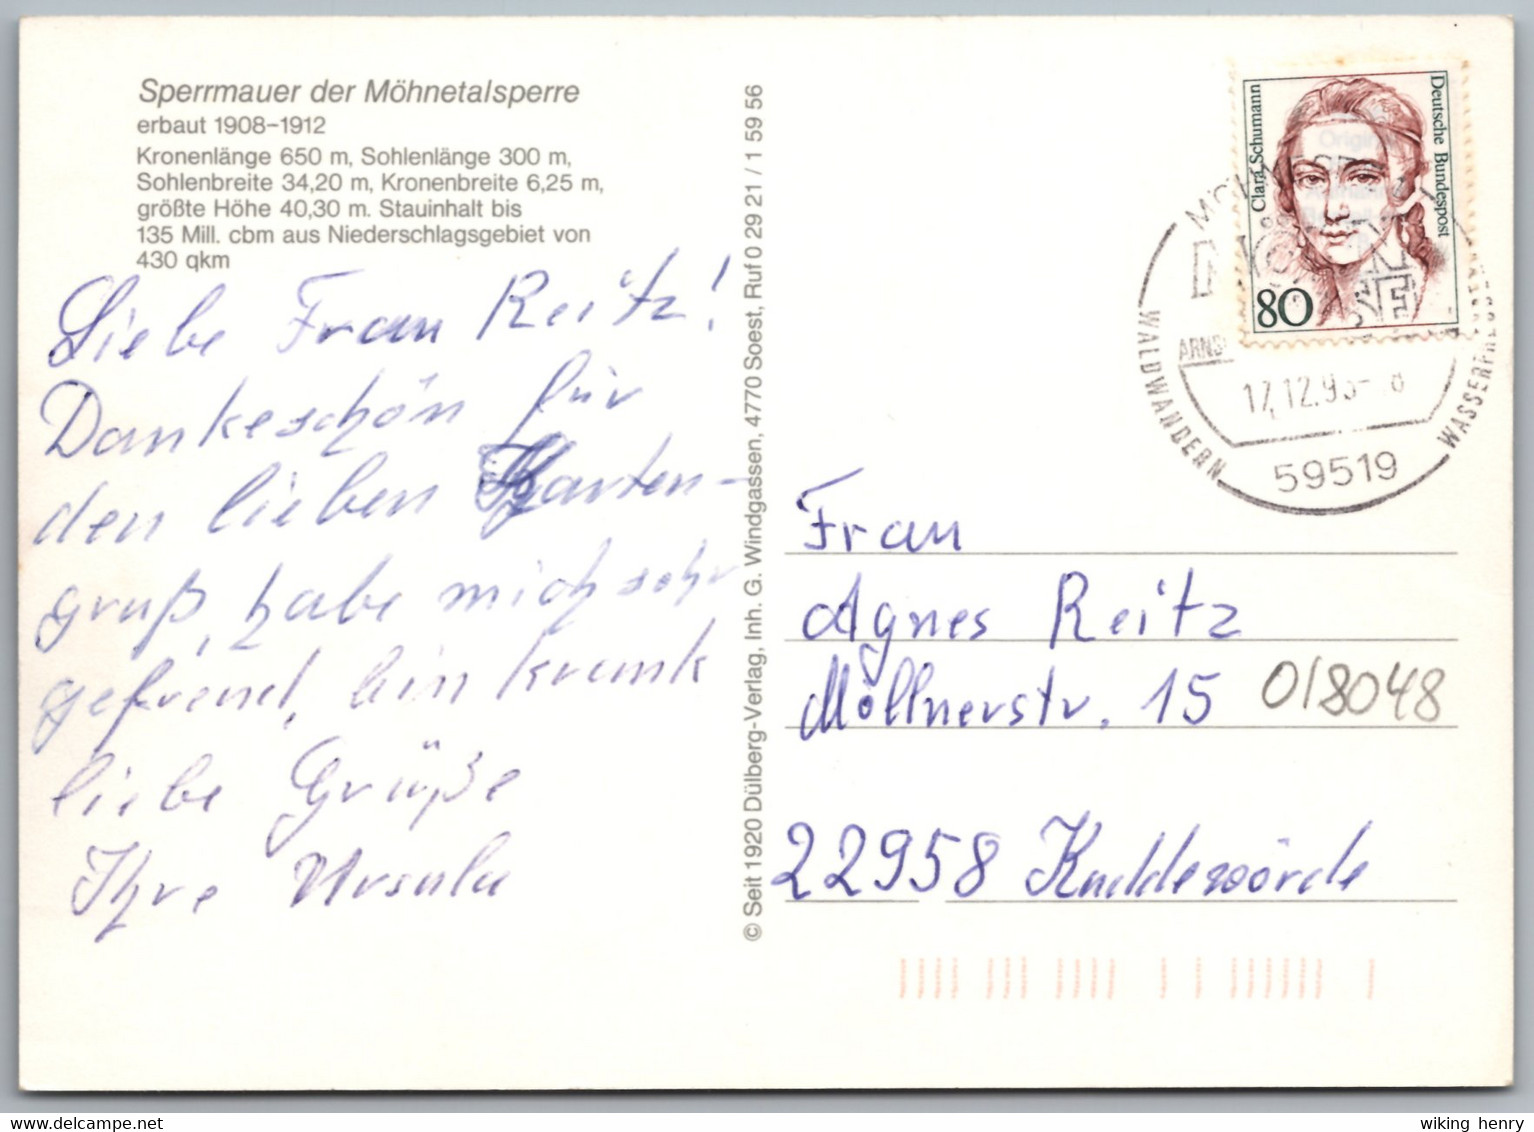 Sperrmauer der Möhnetalsperre
erbaut 1908–1912
Kronenlänge 650 m, Sohlenlänge 300 m,
Sohlenbreite 34,20 m, Kronenbreite 6,25 m,
größte Höhe 40,30 m. Stauinhalt bis
135 Mill. cbm aus Niederschlagsgebiet von
430 qkm
Liebe Frau Reitz!
Dankeschön für
den lieben Karten-
gruß, habe mich sehr
gefreut, bin krank
liebe Grüße
Ihre Ursula
© Seit 1920 Dülberg-Verlag, Inh. G. Windgassen, 4770 Soest, Ruf 0 29 21 / 1 59 56
Clara Schumann
Deutsche Bundespost
80
ARNS
17.12.93
WALDWANDERN
59519
Frau
Agnes Reitz
Möllnerstr. 15
018048
22958 Kuddewörde
www.delcampe.net
wiking henry